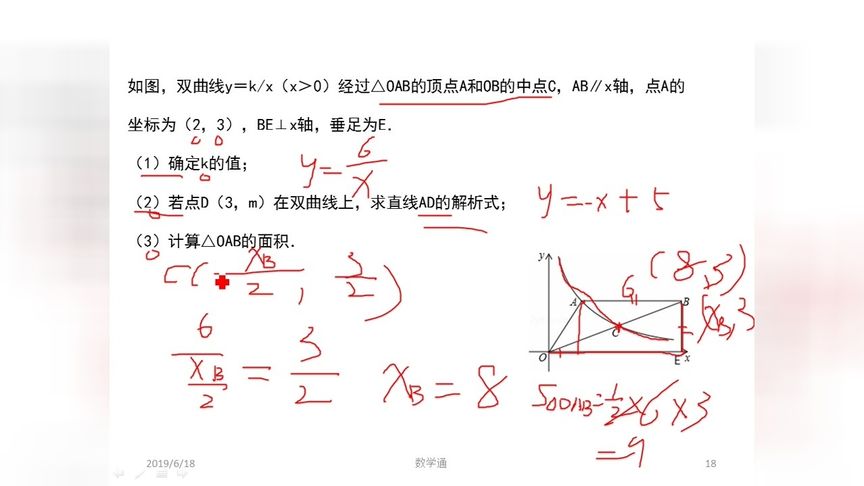 如图，双曲线y＝k/x（x＞0）经过△OAB的顶点A和OB的中点C，AB∥x轴，点A的
坐标为（2，3），BE⊥x轴，垂足为E．
（1）确定k的值；
y=6/x
（2）若点D（3，m）在双曲线上，求直线AD的解析式；
y=-x+5
（3）计算△OAB的面积．
C(xB/2, 3/2)
6/(xB/2)=3/2
xB=8
y
(8,3)
A
6
B
(xB,3
C
O
E
x
S△OAB=1/2×6×3
=9
2019/6/18
数学通
18